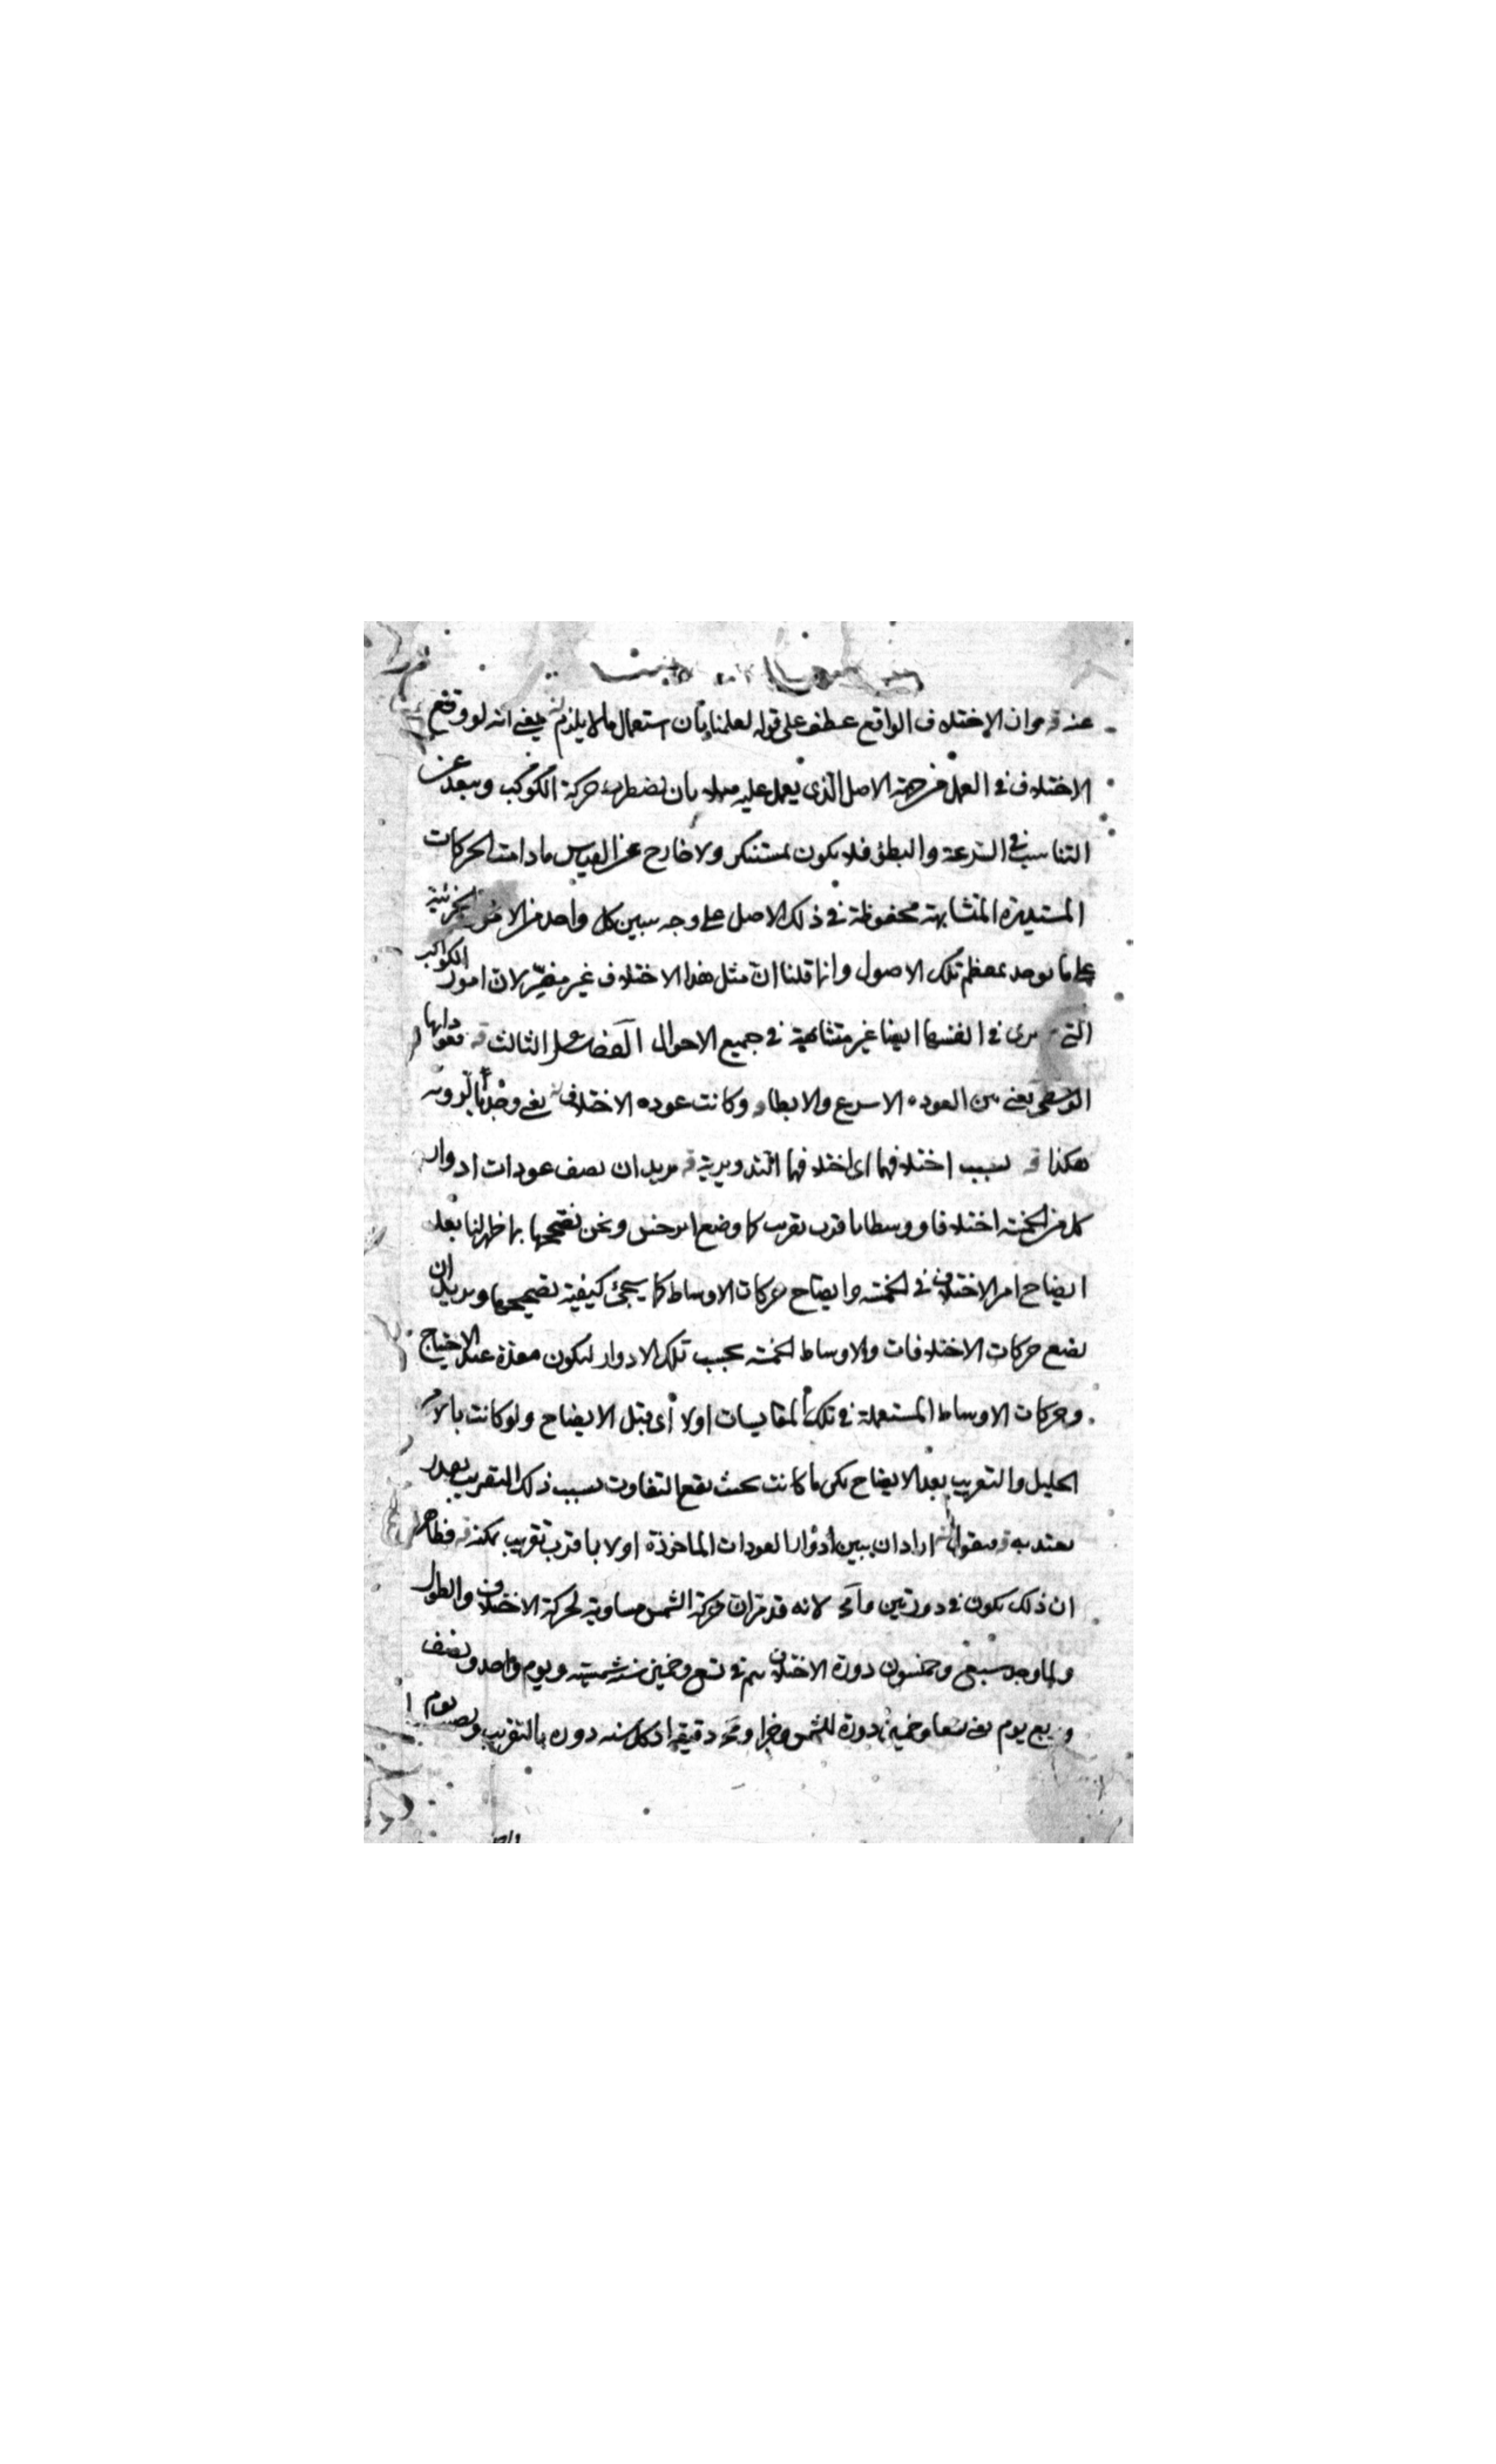 عنه قه وان الاختلاف الواقع عطف على قوله لعلمنا بان استعمال ما لا يلزم يعنى انه لو وقع
الاختلاف فى العمل من جهة الاصل الذى يعمل عليه بان تضطرب حركة الكوكب ويبعد عن
التناسب فى السرعة والبطؤ فلا يكون بمستنكر ولا خارج عن القياس ما دامت الحركات
المستديرة المتشابهة محفوظة فى ذلك الاصل على وجه يبين كل واحد من الامور الجزئية
على ما يوجد بمعظم تلك الاصول وانما قلنا ان مثل هذا الاختلاف غير مضر لان امور الكواكب
التى ترى فى انفسها ايضا غير متشابهة فى جميع الاحوال الفصل الثالث قه
الوسطى يعنى بين العودة الاسرع والابطاء وكانت عودة الاختلاف يعنى وجدنا بالروية
هكذا قه بسبب اختلافهما اى اختلافهما التدويرية قه نريد ان نصف عودات ادوار
كل من الخمسة اختلافا ووسطا باقرب تقريب كما وضع ابرخس ونحن نصححها بما ظهر لنا بعد
ايضاح امر الاختلاف فى الخمسة وايضاح حركات الاوساط كما سيجئ كيفية تصحيحها ونريد ان
نضع حركات الاختلافات والاوساط الخمسة بحسب تلك الادوار ليكون معدة عند الاحتياج
وحركات الاوساط المستعملة فى تلك المقايسات اولا اى قبل الايضاح ولو كانت بالامر
الجليل والتقريب بعد الايضاح لكن ما كانت بحيث يقع التفاوت بسبب ذلك التقريب بقدر
يعتد به قه فنقول اراد ان يبين ادوار العودات الماخوذة اولا باقرب تقريب يمكنه قه فظاهر
ان ذلك يكون فى دورتين لانه قد مر ان حركة الشمس مساوية لحركة الاختلاف والطول
ولما وجد سبعى وخمسون دورة الاختلاف يتم فى تسع وخمسين سنة شمسية ويوم واحد ونصف
وربع يوم يعنى تسعا وخمسين دورة للشمس وجزا دقيقة اذ كل سنة دورة بالتقريب ونصف يوم